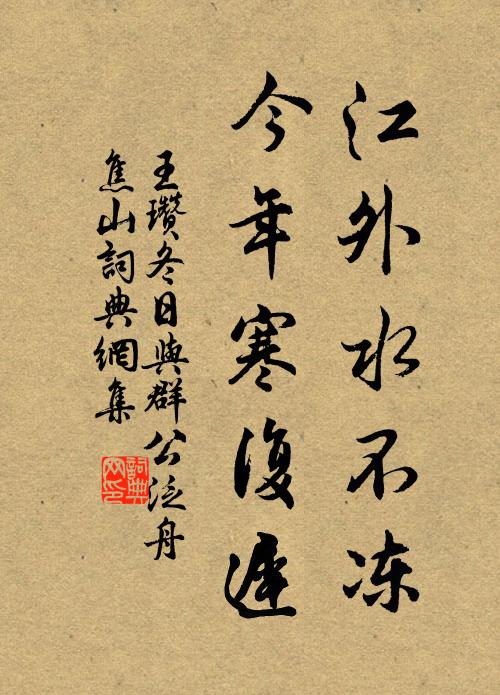 江外水不冻
今年寒復遲
王瓚冬日與群公泛舟
焦山詞典網集
詞典网印